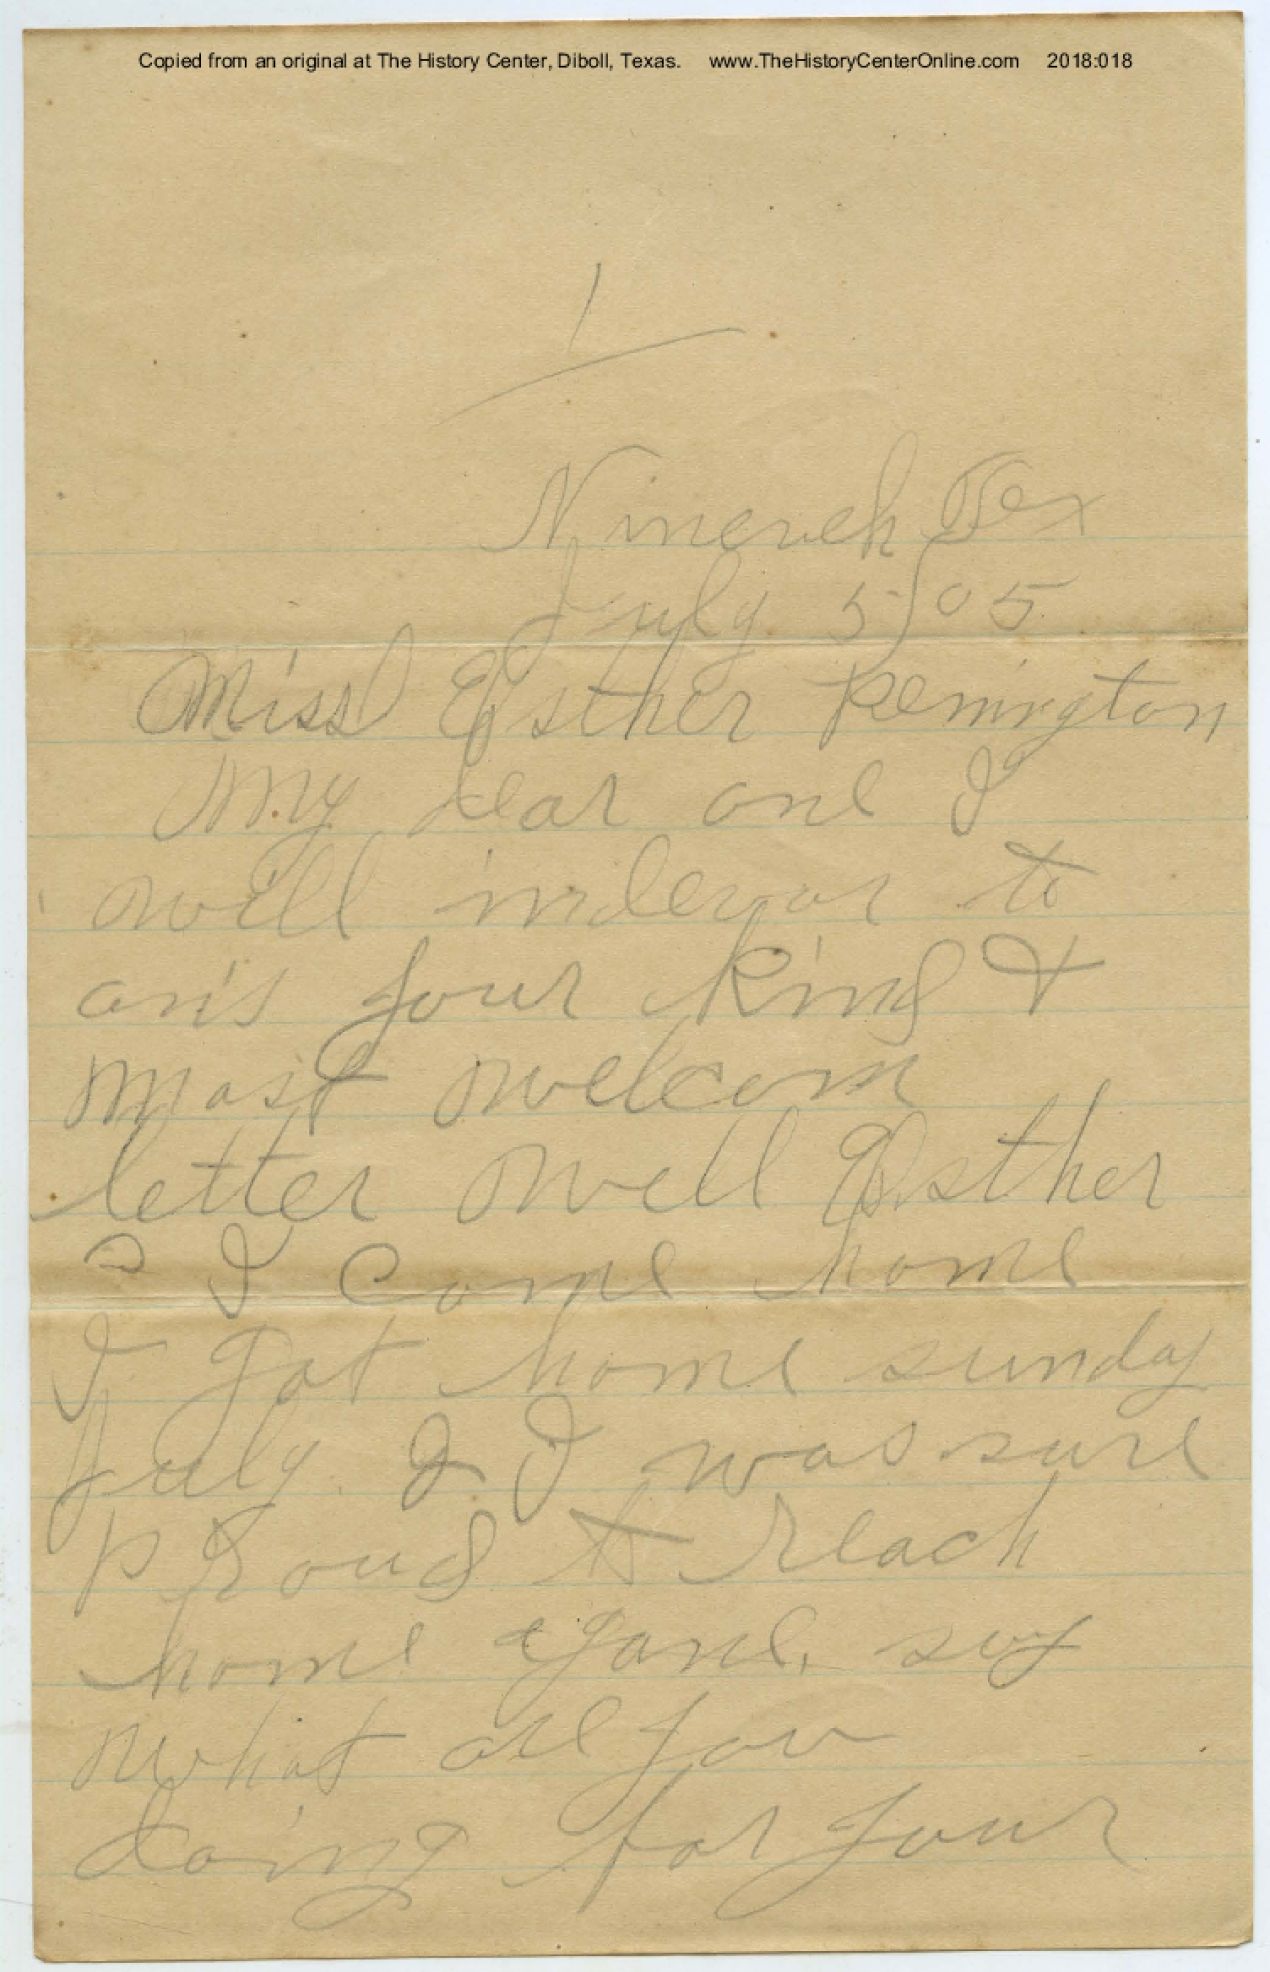 Copied from an original at The History Center, Diboll, Texas. www.TheHistoryCenterOnline.com 2018:018
1
Nineveh Tex
July 5/05
Miss Esther Penington
My dear one I
will indevor to
ans your kind &
most welcom
letter well Esther
I come home
I got home sunday
July 2 I was sure
proud to reach
home agane. say
what are you
doing for your